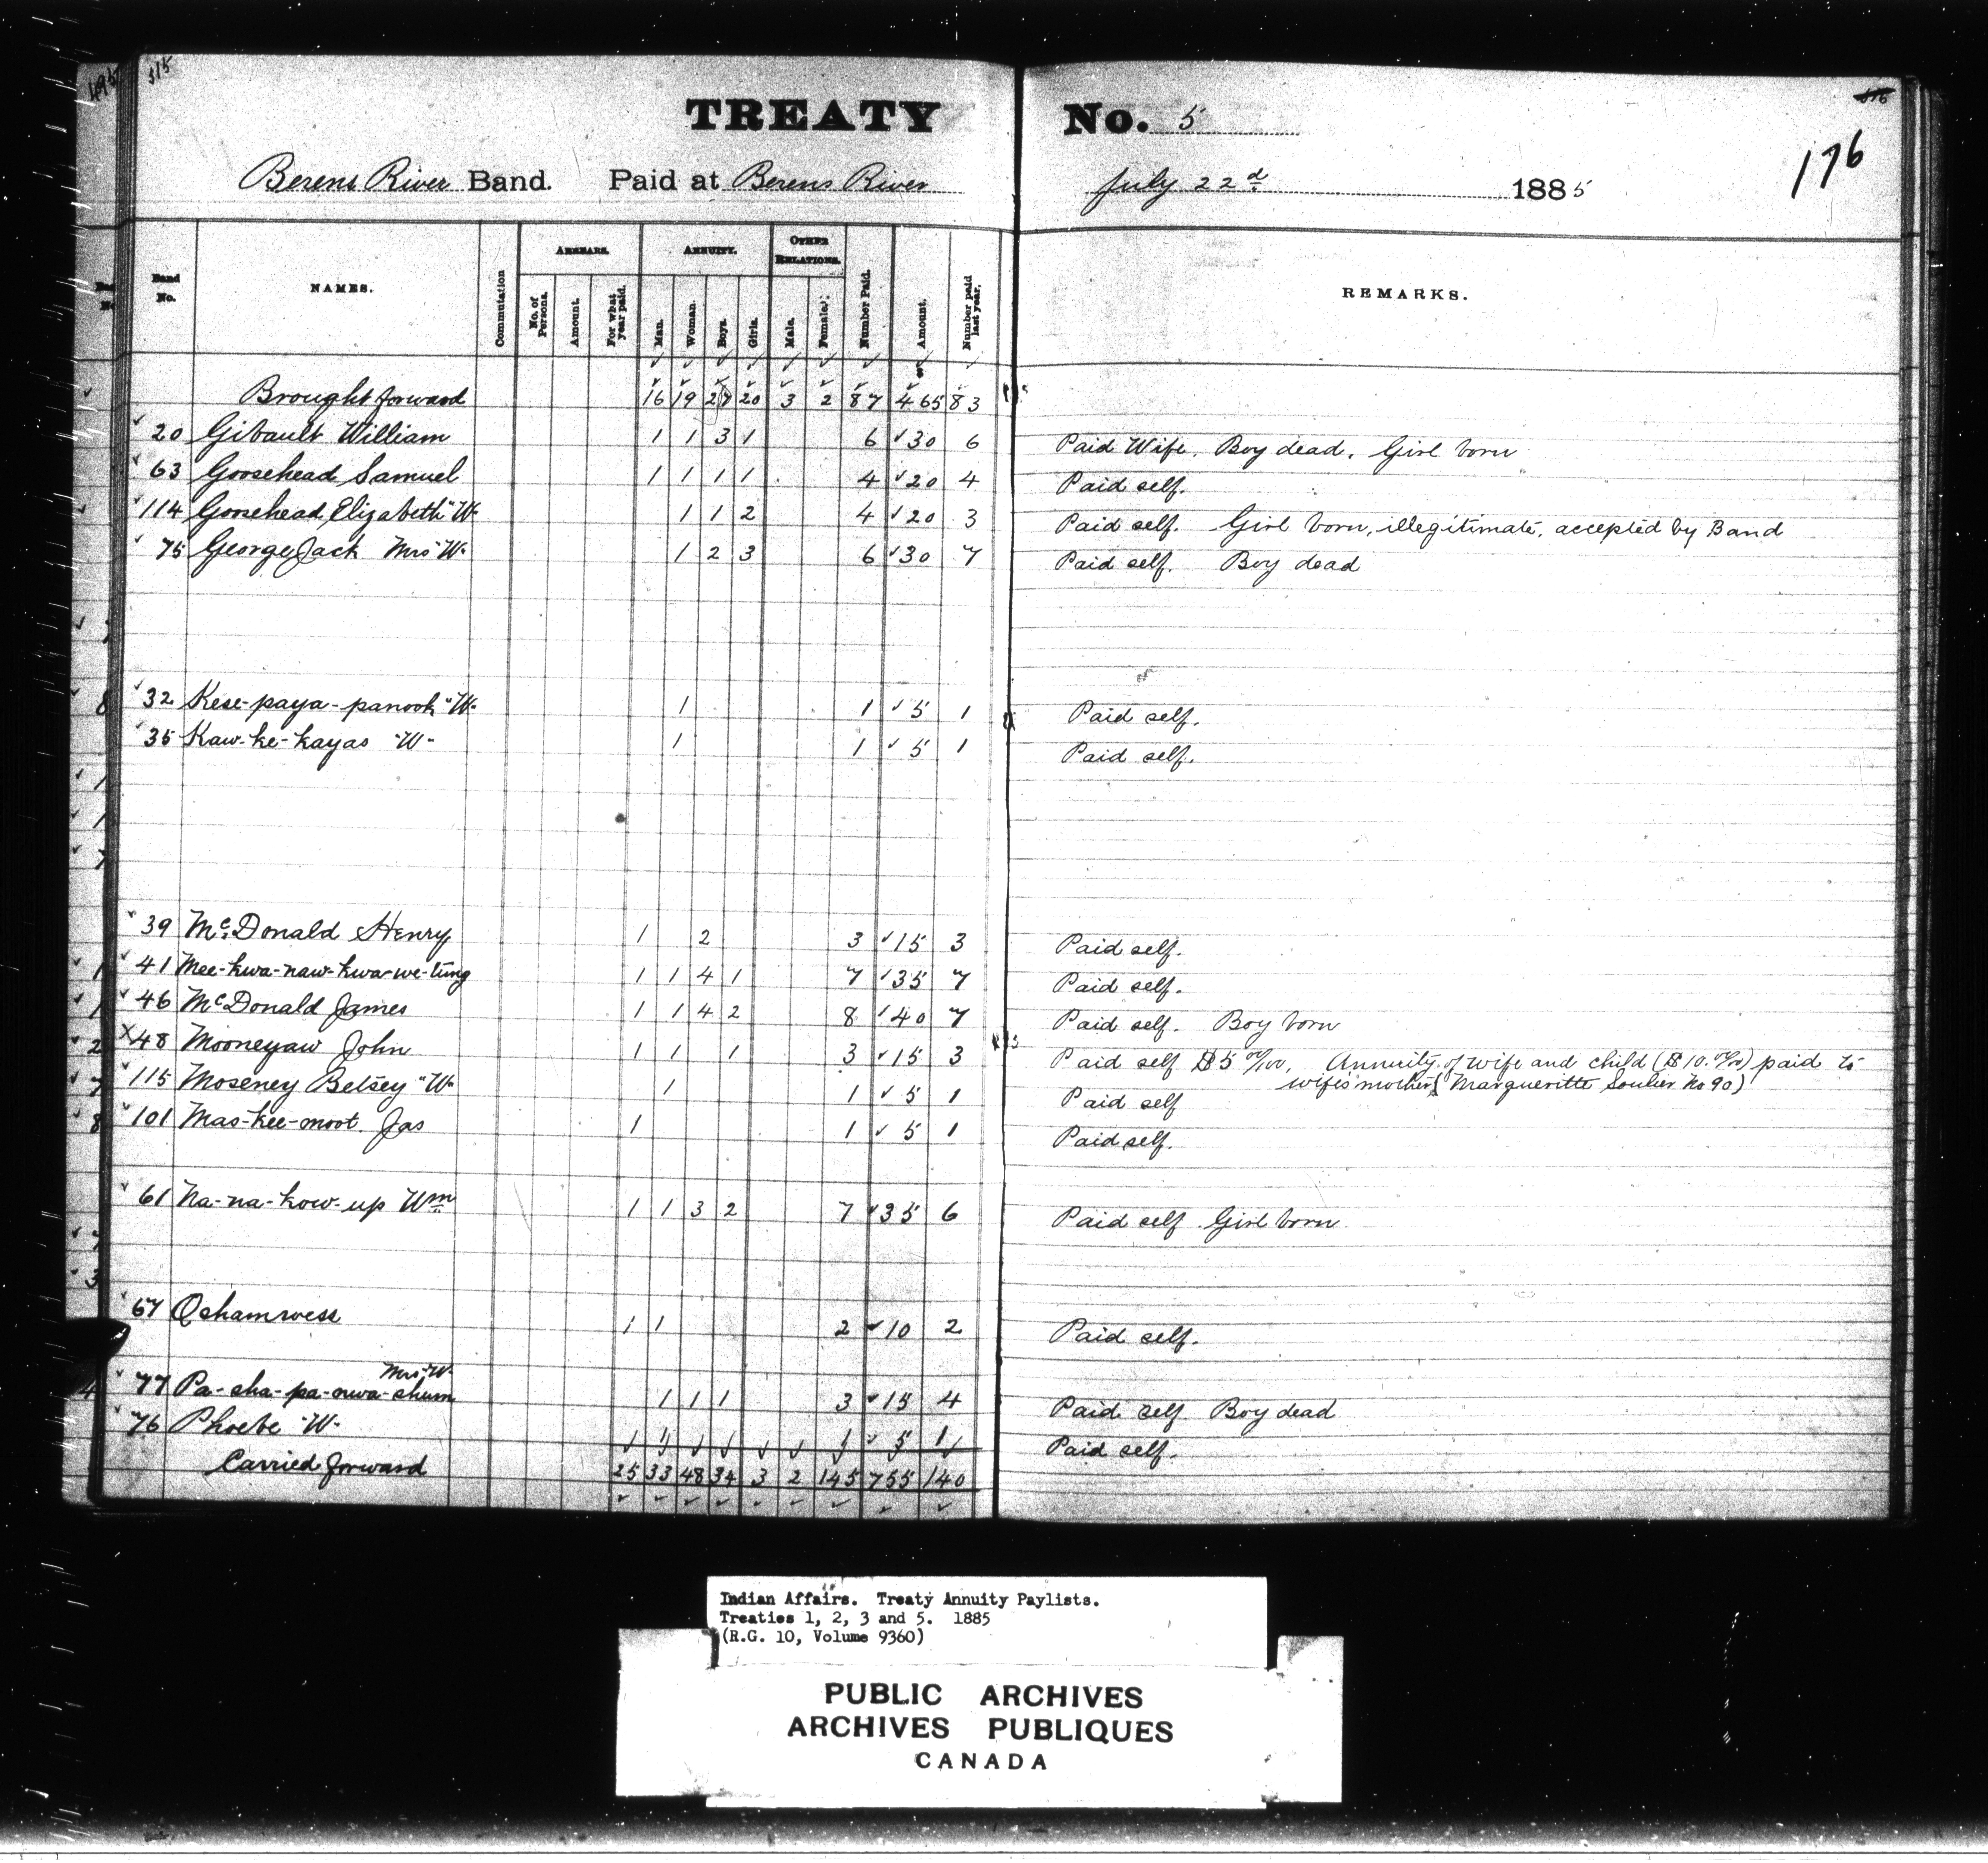 315
TREATY No. 5
176
Berens River Band. Paid at Berens River July 22d 1885
Band No. NAMES. Commutation ARREARS. No. of Persons. Amount. For what year paid. ANNUITY. Man. Woman. Boys. Girls. OTHER RELATIONS. Male. Female. Number Paid. Amount. Number paid last year. REMARKS.
Brought forward 16 19 27 20 3 2 87 465 83
20 Gibault William 1 1 3 1 6 30 6 Paid Wife. Boy dead. Girl born
63 Goosehead Samuel 1 1 1 1 4 20 4 Paid self.
114 Goosehead Elizabeth "W" 1 1 2 4 20 3 Paid self. Girl born, illegitimate, accepted by Band
75 George Jack Mrs "W" 1 2 3 6 30 7 Paid self. Boy dead
32 Kese-paya-panook "W" 1 1 5 1 Paid self.
35 Kaw-ke-kayas "W" 1 1 5 1 Paid self.
39 McDonald Henry 1 2 3 15 3 Paid self.
41 Mee-kwa-naw-kwa-we-tung 1 1 4 1 7 35 7 Paid self.
46 McDonald James 1 1 4 2 8 40 7 Paid self. Boy born
X48 Mooneyaw John 1 1 1 3 15 3 Paid self $5 00/100, Annuity of wife and child ($10.00/100) paid to
wife's mother (Margueritte Soulier No 90)
115 Moseney Betsey "W" 1 1 5 1 Paid self
101 Mas-kee-moot. Jas 1 1 5 1 Paid self.
61 Na-na-kow-up Wm 1 1 3 2 7 35 6 Paid self Girl born
67 Oshamwess 1 1 2 10 2 Paid self.
Mrs "W"
77 Pa-sha-pa-nwa-shum 1 1 1 3 15 4 Paid self Boy dead
76 Phoebe "W" 1 1 5 1 Paid self.
Carried forward 25 33 48 34 3 2 145 755 140
Indian Affairs. Treaty Annuity Paylists.
Treaties 1, 2, 3 and 5. 1885
(R.G. 10, Volume 9360)
PUBLIC ARCHIVES
ARCHIVES PUBLIQUES
CANADA